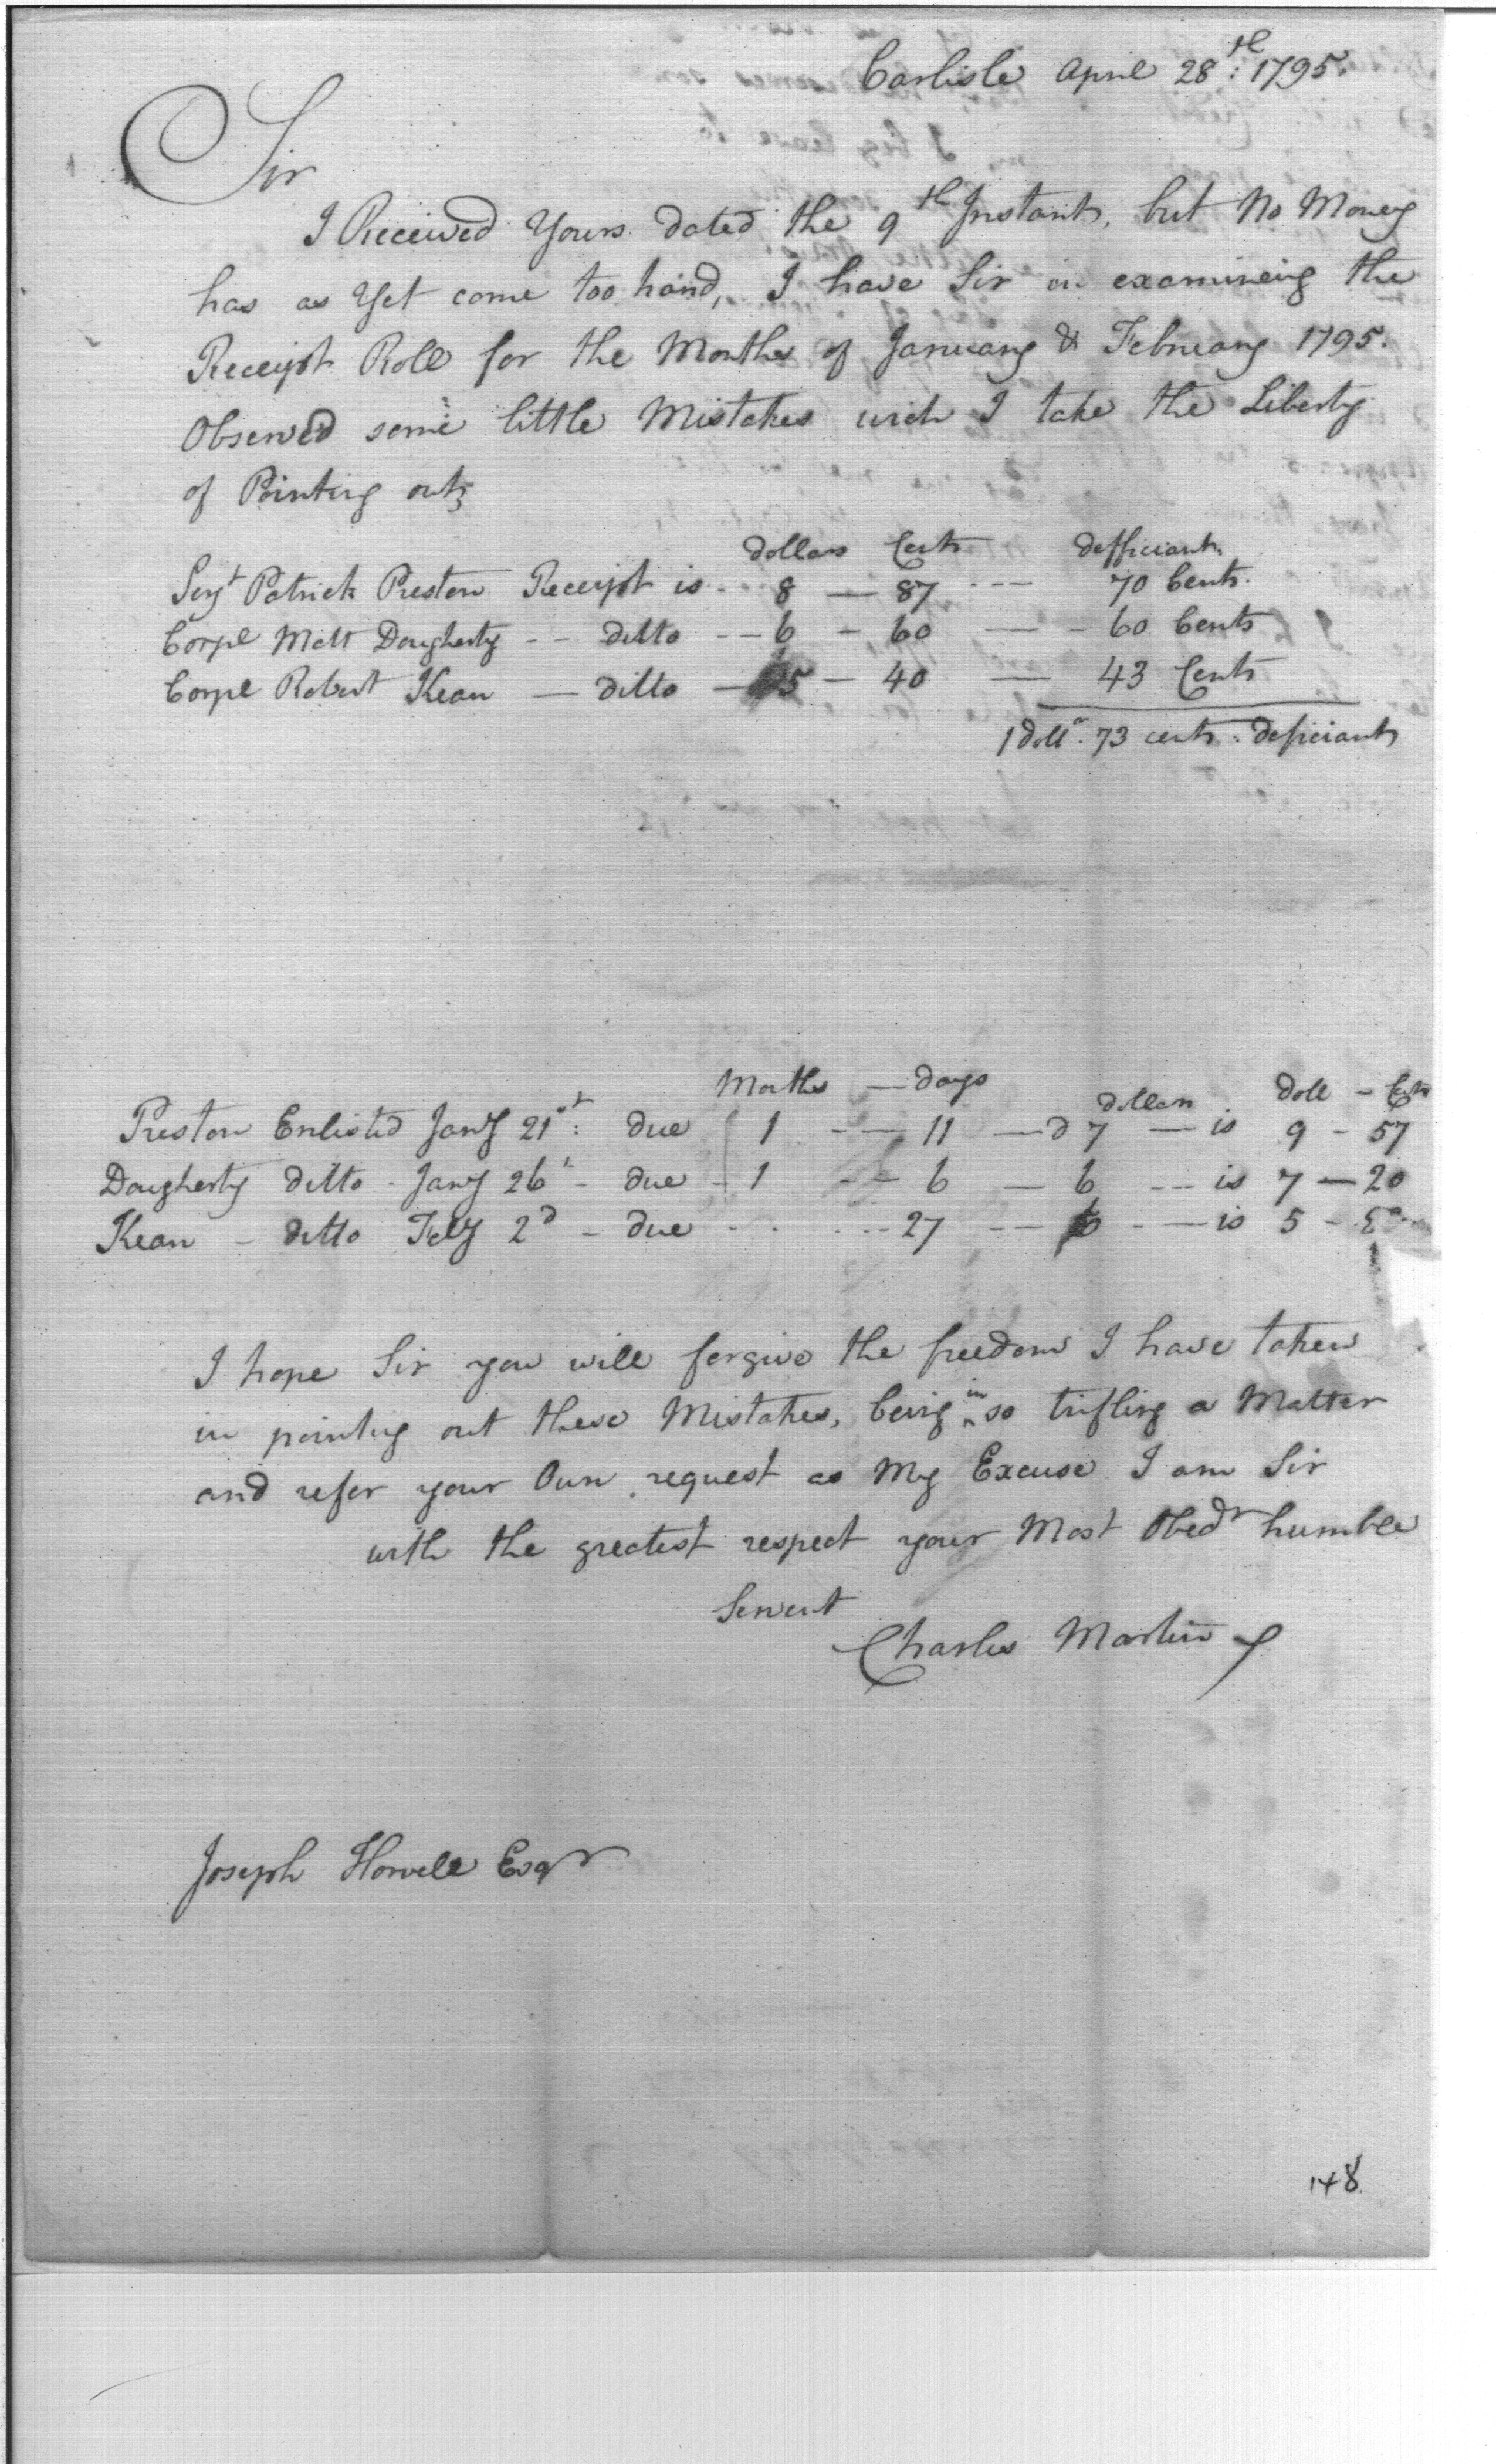 Carlisle April 28th: 1795.
Sir
I Received Yours dated the 9th Instant, but No Money
has as Yet come too hand, I have Sir in examineing the
Receipt Roll for the Months of January & February 1795.
Observed some little Mistakes wich I take the Liberty
of Pointing out,
dollars Cents defficiant.
Serjt Patrick Preston Receipt is - 8 — 87 --- 70 Cents.
Corpl Matt Dougherty - - ditto -- 6 - 60 — - 60 Cents
Corpl Robert Kean — ditto — 5 - 40 — 43 Cents
1 dollr. 73 cents. deficiant
Months — days dollars Doll - Cts
Preston Enlisted Jany 21st: due 1 --- 11 — d 7 — is 9 - 57
Dougherty ditto - Jany 26t - due - 1 -- 6 — 6 -- is 7 — 20
Kean - ditto Feby 2d - due - . . -- 27 -- 6 - — is 5 -
I hope Sir you will forgive the freedom I have taken
in pointing out these Mistakes, being in so trifling a Matter
and refer your Own request as My Excuse I am Sir
with the greatest respect your Most Obedt humble
Servent
Charles Martin
Joseph Howell Esqr
148.